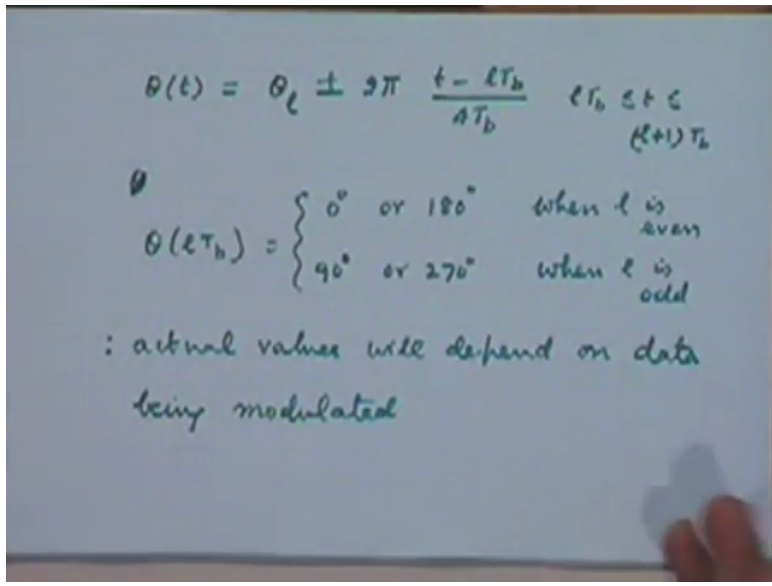 θ(t) = θ_l ± 2π (t - lT_b)/(4T_b) lT_b ≤ t ≤ (l+1)T_b
θ(lT_b) = { 0° or 180° when l is even
90° or 270° when l is odd
: actual values will depend on data
being modulated